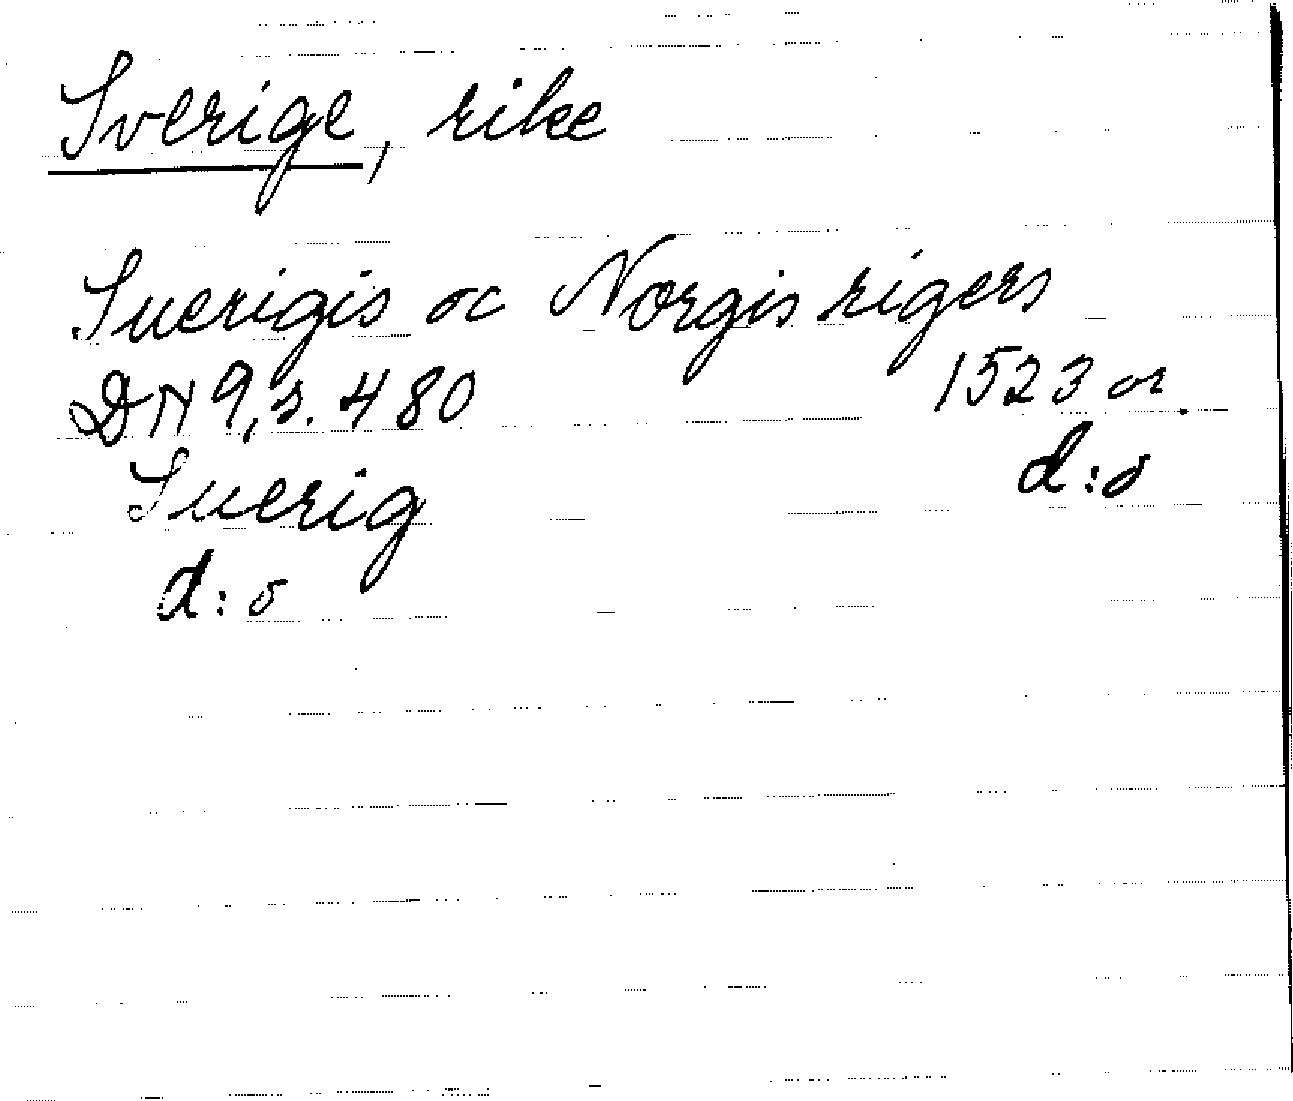 Sverige, rike
Suerigis oc Norgis rigers
DN 9, s. 480 1523 or.
Suerig d:o
d:o